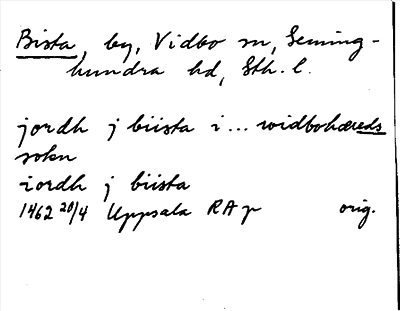 Bista, by, Vidbo sn, Seming-
hundra hd, Sth. l.
jordh j biista i ... widbohæreds
sokn
iordh j biista
1462 20/4 Uppsala RA p orig.